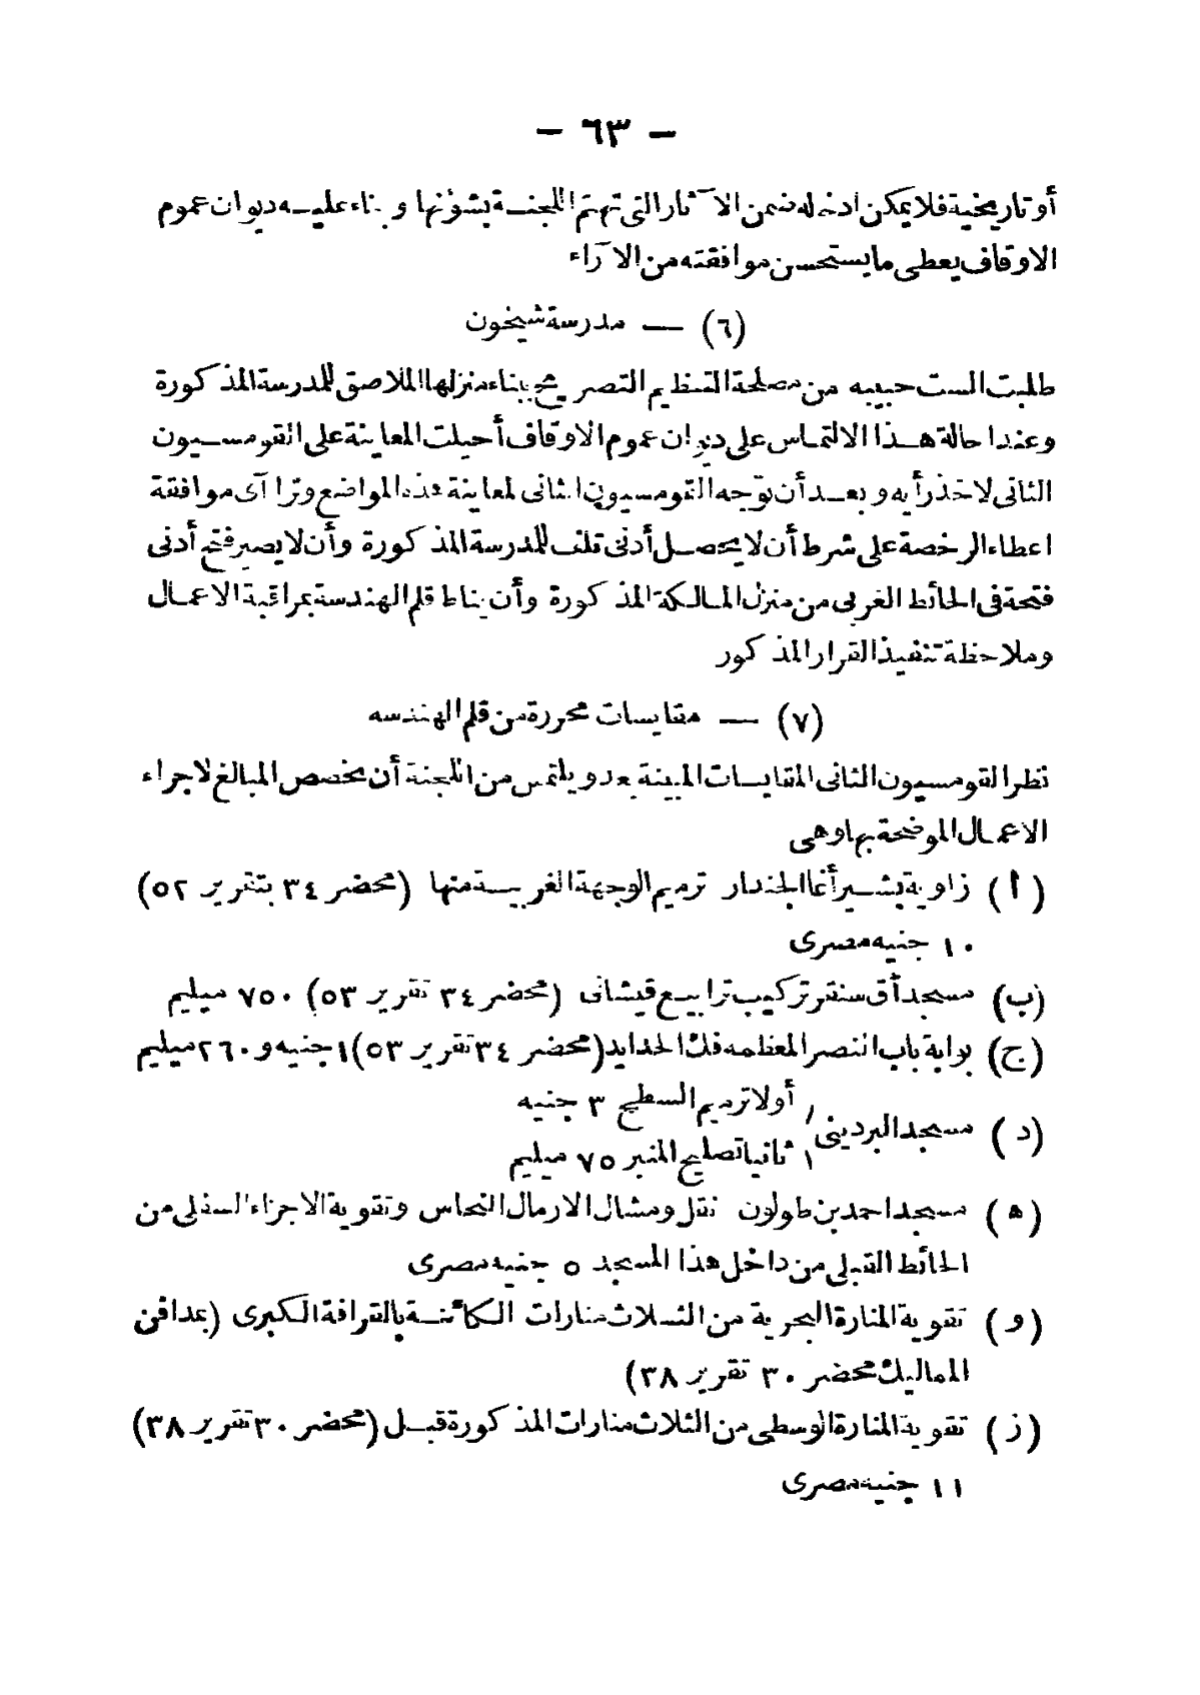 — ٦٣ —
أو تاريخية فلا يمكن ادخاله ضمن الآثار التى تهتم اللجنة بشؤنها و بناء عليه ديوان عموم
الاوقاف يعطى ما يستحسن موافقته من الآراء
(٦) — مدرسة شيخون
طلبت الست حبيبه من مصلحة التنظيم التصريح ببناء منزلها الملاصق للمدرسة المذكورة
وعند احالة هذا الالتماس على ديوان عموم الاوقاف أحيلت المعاينة على القومسيون
الثانى لاخذ رأيه و بعد أن توّجه القومسيون الثانى لمعاينة هذه المواضع وترا آى موافقة
اعطاء الرخصة على شرط أن لا يحصل أدنى تلف للمدرسة المذكورة وأن لا يصير فتح أدنى
فتحة فى الحائط الغربى من منزل المالكة المذكورة وأن يناط قلم الهندسة بمراقبة الاعمال
وملاحظة تنفيذ القرار المذكور
(٧) — مقايسات محررة من قلم الهندسه
نظر القومسيون الثانى المقايسات المبينة بعد و يلتمس من اللجنة أن تخصص المبالغ لاجراء
الاعمال الموضحة بها وهى
(أ) زاوية بشير أغا الجندار ترميم الوجهة الغربية منها (محضر ٣٤ بتقرير ٥٢)
١٠ جنيه مصرى
(ب) مسجد أق سنقر تركيب ترابيع قيشانى (محضر ٣٤ تقرير ٥٣) ٧٥٠ ميليم
(ج) بوابة باب النصر المعظمه فك الحدايد (محضر ٣٤ تقرير ٥٣) ١ جنيه و ٢٦٠ ميليم
أولا ترميم السطح ٣ جنيه
(د) مسجد البردينى
ثانيا تصليح المنبر ٧٥ ميليم
(ه) مسجد احمد بن طولون نقل ومشال الارمال النحاس وتقوية الاجزاء السفلى من
الحائط القبلى من داخل هذا المسجد ٥ جنيه مصرى
(و) تقوية المنارة البحرية من الثلاث منارات الكائنة بالقرافة الكبرى (بمدافن
المماليك محضر ٣٠ تقرير ٣٨)
(ز) تقوية المنارة الوسطى من الثلاث منارات المذكورة قبل (محضر ٣٠ تقرير ٣٨)
١١ جنيه مصرى